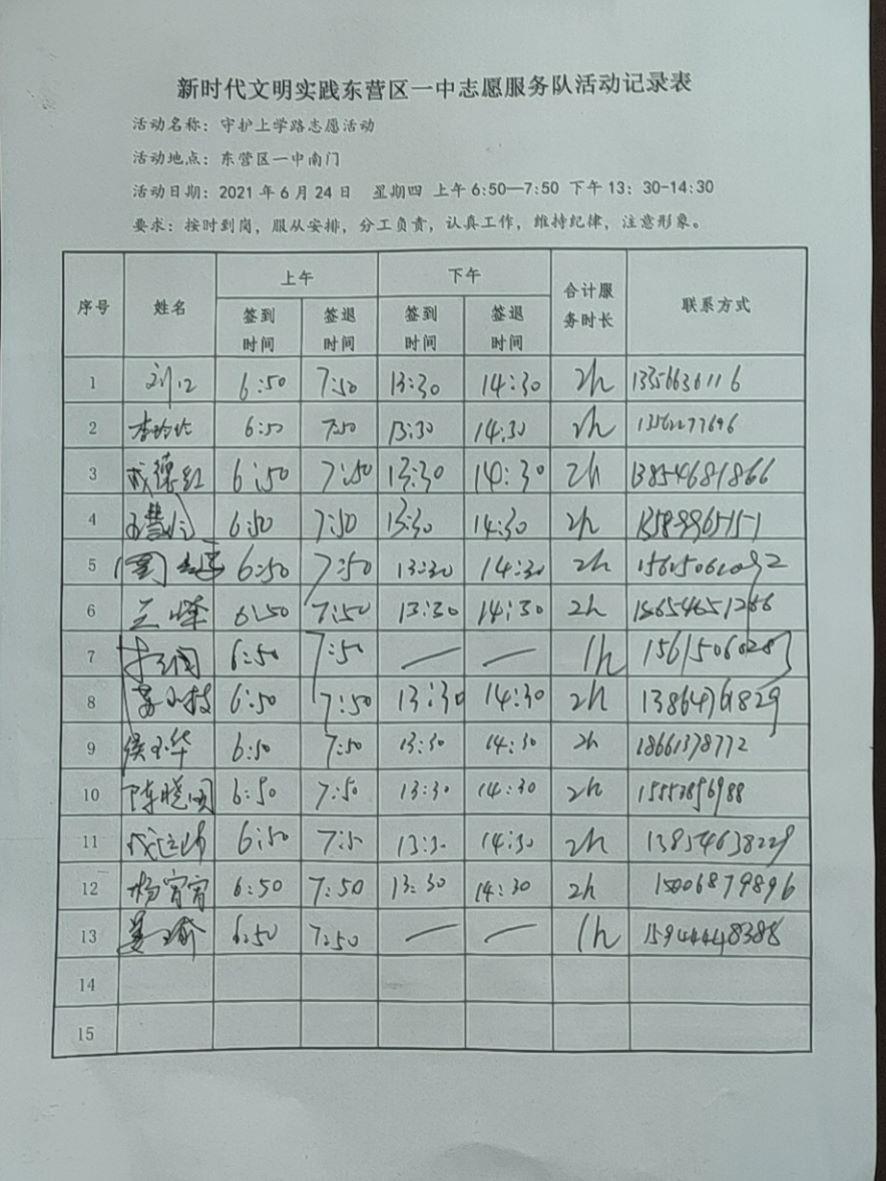 新时代文明实践东营区一中志愿服务队活动记录表
活动名称：守护上学路志愿活动
活动地点：东营区一中南门
活动日期：2021年6月24日 星期四 上午6:50—7:50 下午13：30-14:30
要求：按时到岗，服从安排，分工负责，认真工作，维持纪律，注意形象。
序号 姓名 上午 下午 合计服务时长 联系方式
签到时间 签退时间 签到时间 签退时间
1 6:50 7:50 13:30 14:30 2h 13356636116
2 6:50 7:50 13:30 14:30 2h
3 成德红 6:50 7:50 13:30 14:30 2h 13854681866
4 6:50 7:50 13:30 14:30 2h 13589965151
5 6:50 7:50 13:30 14:30 2h
6 兰峰 6:50 7:50 13:30 14:30 2h 15654651266
7 6:50 7:50 — — 1h
8 6:50 7:50 13:30 14:30 2h 13864761829
9 侯玉华 6:50 7:50 13:30 14:30 2h 18661378772
10 陈晓园 6:50 7:50 13:30 14:30 2h
11 6:50 7:50 13:30 14:30 2h 13854638229
12 杨宵宵 6:50 7:50 13:30 14:30 2h 15006879896
13 6:50 7:50 — — 1h 15944448388
14
15